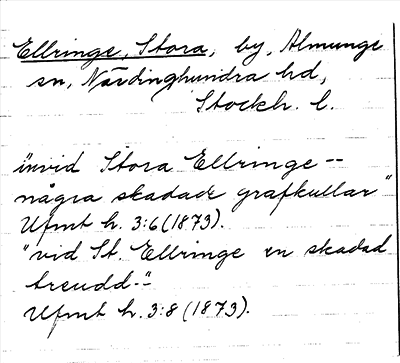 Ellringe, Stora, by, Almunge
sn, Närdinghundra hd,
Stockh. l.
"invid Stora Ellringe --
några skadade grafkullar"
Ufmt h. 3:6 (1873).
"vid St. Ellringe en skadad
treudd-"
Ufmt h. 3:8 (1873).